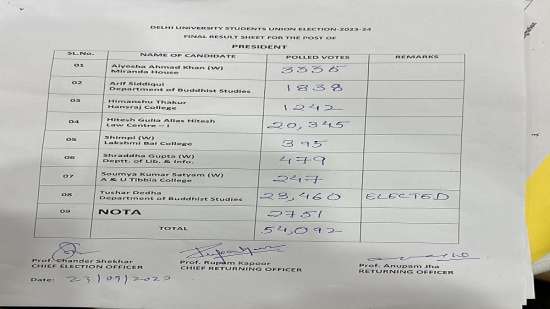 DELHI UNIVERSITY STUDENTS UNION ELECTION-2023-24
FINAL RESULT SHEET FOR THE POST OF
PRESIDENT
SL.No. NAME OF CANDIDATE POLLED VOTES REMARKS
01 Aiyesha Ahmad Khan (W) 3335
Miranda House
02 Arif Siddiqui 1838
Department of Buddhist Studies
03 Himanshu Thakur 1242
Hansraj College
04 Hitesh Gulia Alias Hitesh 20,345
Law Centre – I
05 Shimpi (W) 395
Lakshmi Bai College
06 Shraddha Gupta (W) 479
Deptt. of Lib. & Info.
07 Soumya Kumar Satyam (W) 247
A & U Tibbia College
08 Tushar Dedha 23,460 ELECTED
Department of Buddhist Studies
09 NOTA 2751
TOTAL 54,092
Prof. Chander Shekhar Prof. Rupam Kapoor Prof. Anupam Jha
CHIEF ELECTION OFFICER CHIEF RETURNING OFFICER RETURNING OFFICER
Date: 23/09/2023